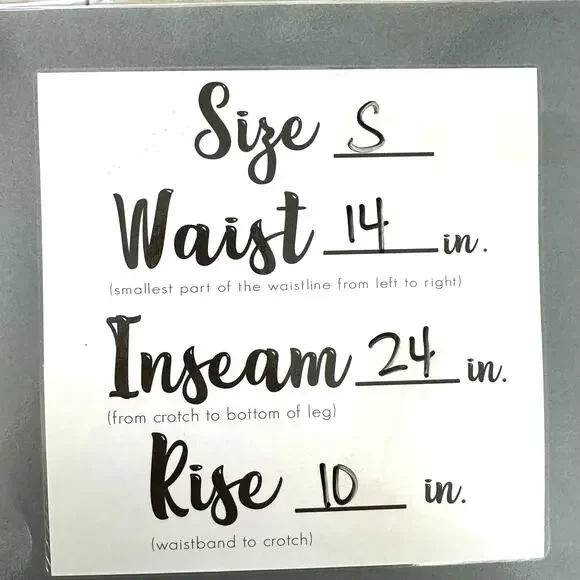 Size S
Waist 14 in.
(smallest part of the waistline from left to right)
Inseam 24 in.
(from crotch to bottom of leg)
Rise 10 in.
(waistband to crotch)